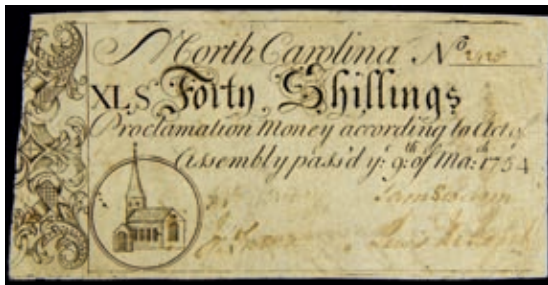 North Carolina No 
XLS Forty Shillings
Proclamation Money according to Act of
Assembly pass'd ye 9th of Mar: 1754
Sam Swann
Lewis